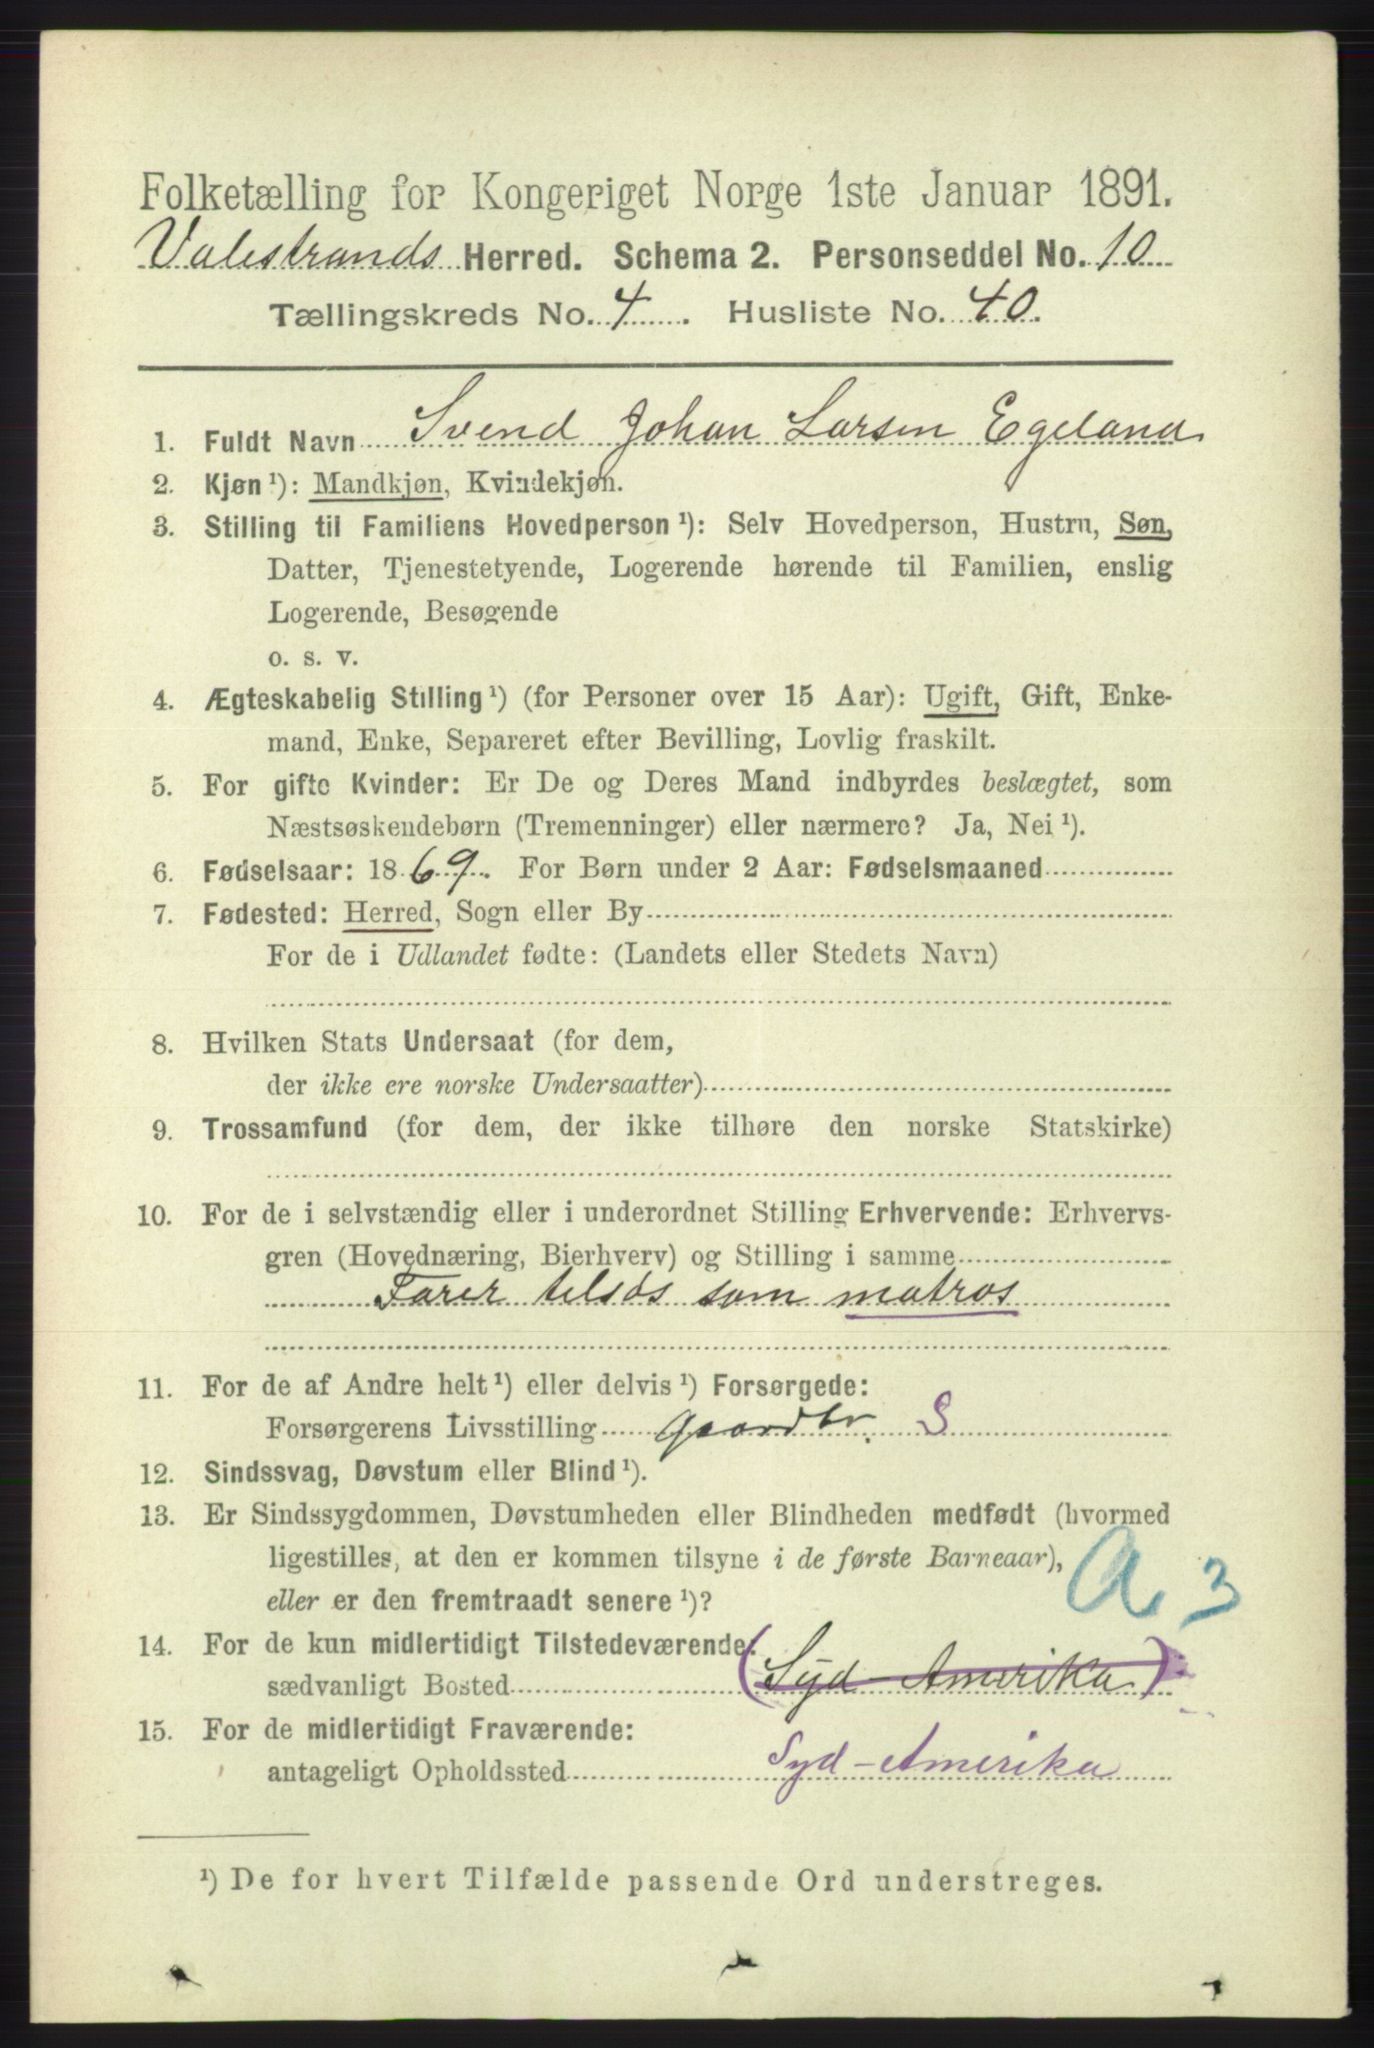 Folketælling for Kongeriget Norge 1ste Januar 1891.
Valestrands Herred. Schema 2. Personseddel No. 10
Tællingskreds No. 4. Husliste No. 40.
1. Fuldt Navn Svend Johan Larsen Egeland
2. Kjøn ¹): Mandkjøn, Kvindekjøn.
3. Stilling til Familiens Hovedperson ¹): Selv Hovedperson, Hustru, Søn,
Datter, Tjenestetyende, Logerende hørende til Familien, enslig
Logerende, Besøgende
o. s. v.
4. Ægteskabelig Stilling ¹) (for Personer over 15 Aar): Ugift, Gift, Enke-
mand, Enke, Separeret efter Bevilling, Lovlig fraskilt.
5. For gifte Kvinder: Er De og Deres Mand indbyrdes beslægtet, som
Næstsøskendebørn (Tremenninger) eller nærmere? Ja, Nei ¹).
6. Fødselsaar: 1869. For Børn under 2 Aar: Fødselsmaaned
7. Fødested: Herred, Sogn eller By
For de i Udlandet fødte: (Landets eller Stedets Navn)
8. Hvilken Stats Undersaat (for dem,
der ikke ere norske Undersaatter)
9. Trossamfund (for dem, der ikke tilhøre den norske Statskirke)
10. For de i selvstændig eller i underordnet Stilling Erhvervende: Erhvervs-
gren (Hovednæring, Bierhverv) og Stilling i samme
Farer tilsøs som matros
11. For de af Andre helt ¹) eller delvis ¹) Forsørgede:
Forsørgerens Livsstilling Gaardbr. S
12. Sindssvag, Døvstum eller Blind ¹).
13. Er Sindssygdommen, Døvstumheden eller Blindheden medfødt (hvormed
ligestilles, at den er kommen tilsyne i de første Barneaar),
eller er den fremtraadt senere ¹)?
A 3
14. For de kun midlertidigt Tilstedeværende:
sædvanligt Bosted (Syd-Amerika)
15. For de midlertidigt Fraværende:
antageligt Opholdssted Syd-Amerika
¹) De for hvert Tilfælde passende Ord understreges.